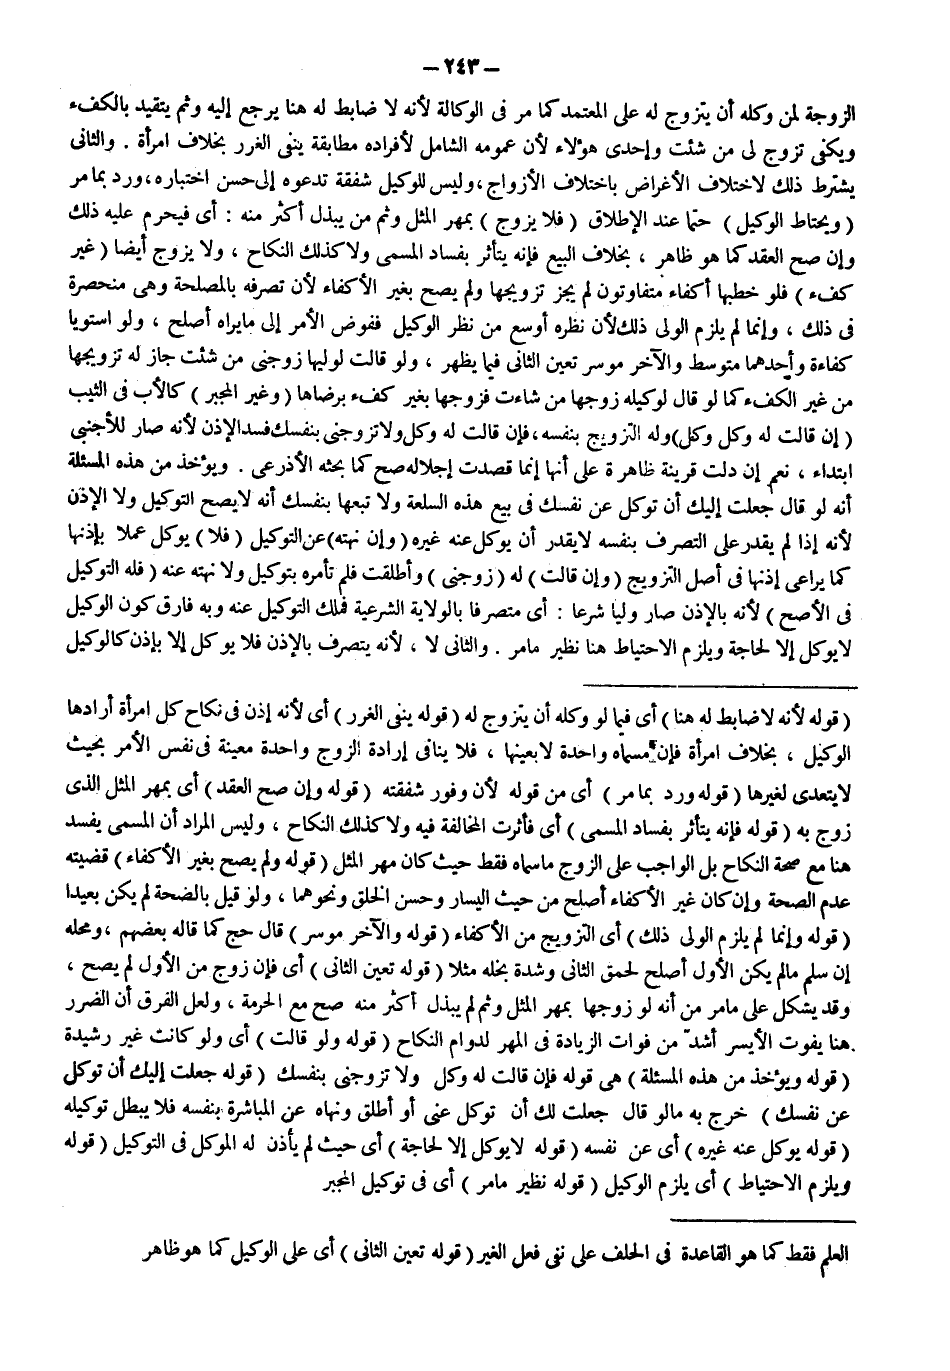 – ٢٤٣ –
الزوجة لمن وكله أن يتزوج له على المعتمد كما مر فى الوكالة لأنه لا ضابط له هنا يرجع إليه وثم يتقيد بالكفء
ويكفى تزوج لى من شئت وإحدى هؤلاء لأن عمومه الشامل لأفراده مطابقة ينفى الغرر بخلاف امرأة . والثانى
يشترط ذلك لاختلاف الأغراض باختلاف الأزواج ، وليس للوكيل شفقة تدعوه إلى حسن اختباره ، ورد بما مر
( ويحتاط الوكيل ) حتما عند الإطلاق ( فلا يزوج ) بمهر المثل وثم من يبذل أكثر منه : أى فيحرم عليه ذلك
وإن صح العقد كما هو ظاهر ، بخلاف البيع فإنه يتأثر بفساد المسمى ولا كذلك النكاح ، ولا يزوج أيضا ( غير
كفء ) فلو خطبها أكفاء متفاوتون لم يجز تزويجها ولم يصح بغير الأكفاء لأن تصرفه بالمصلحة وهى منحصرة
فى ذلك ، وإنما لم يلزم الولى ذلك لأن نظره أوسع من نظر الوكيل ففوض الأمر إلى مايراه أصلح ، ولو استويا
كفاءة وأحدهما متوسط والآخر موسر تعين الثانى فيما يظهر ، ولو قالت لوليها زوجنى من شئت جاز له تزويجها
من غير الكفء كما لو قال لوكيله زوجها من شاءت فزوجها بغير كفء برضاها ( وغير المجبر ) كالأب فى الثيب
( إن قالت له وكل وكل ) وله التزويج بنفسه ، فإن قالت له وكل ولا تزوجنى بنفسك فسد الإذن لأنه صار للأجنبى
ابتداء ، نعم إن دلت قرينة ظاهرة على أنها إنما قصدت إجلاله صح كما بحثه الأذرعى . ويؤخذ من هذه المسئلة
أنه لو قال جعلت إليك أن توكل عن نفسك فى بيع هذه السلعة ولا تبعها بنفسك أنه لايصح التوكيل ولا الإذن
لأنه إذا لم يقدر على التصرف بنفسه لايقدر أن يوكل عنه غيره ( وإن نهته ) عن التوكيل ( فلا ) يوكل عملا بإذنها
كما يراعى إذنها فى أصل التزويج ( وإن قالت ) له ( زوجنى ) وأطلقت فلم تأمره بتوكيل ولا نهته عنه ( فله التوكيل
فى الأصح ) لأنه بالإذن صار وليا شرعا : أى متصرفا بالولاية الشرعية فملك التوكيل عنه وبه فارق كون الوكيل
لايوكل إلا لحاجة ويلزم الاحتياط هنا نظير مامر . والثانى لا ، لأنه يتصرف بالإذن فلا يوكل إلا بإذن كالوكيل
( قوله لأنه لاضابط له هنا ) أى فيما لو وكله أن يتزوج له ( قوله ينفى الغرر ) أى لأنه إذن فى نكاح كل امرأة أرادها
الوكيل ، بخلاف امرأة فإن مسماه واحدة لابعينها ، فلا ينافى إرادة الزوج واحدة معينة فى نفس الأمر بحيث
لايتعدى لغيرها ( قوله ورد بما مر ) أى من قوله لأن وفور شفقته ( قوله وإن صح العقد ) أى بمهر المثل الذى
زوج به ( قوله فإنه يتأثر بفساد المسمى ) أى فأثرت المخالفة فيه ولا كذلك النكاح ، وليس المراد أن المسمى يفسد
هنا مع صحة النكاح بل الواجب على الزوج ماسماه فقط حيث كان مهر المثل ( قوله ولم يصح بغير الأكفاء ) قضيته
عدم الصحة وإن كان غير الأكفاء أصلح من حيث اليسار وحسن الخلق ونحوهما ، ولو قيل بالصحة لم يكن بعيدا
( قوله وإنما لم يلزم الولى ذلك ) أى التزويج من الأكفاء ( قوله والآخر موسر ) قال حج كما قاله بعضهم ، ومحله
إن سلم مالم يكن الأول أصلح لحمق الثانى وشدة بخله مثلا ( قوله تعين الثانى ) أى فإن زوج من الأول لم يصح ،
وقد يشكل على مامر من أنه لو زوجها بمهر المثل وثم لم يبذل أكثر منه صح مع الحرمة ، ولعل الفرق أن الضرر
هنا يفوت الأيسر أشد من فوات الزيادة فى المهر لدوام النكاح ( قوله ولو قالت ) أى ولو كانت غير رشيدة
( قوله ويؤخذ من هذه المسئلة ) هى قوله فإن قالت له وكل ولا تزوجنى بنفسك ( قوله جعلت إليك أن توكل
عن نفسك ) خرج به مالو قال جعلت لك أن توكل عنى أو أطلق ونهاه عن المباشرة بنفسه فلا يبطل توكيله
( قوله يوكل عنه غيره ) أى عن نفسه ( قوله لايوكل إلا لحاجة ) أى حيث لم يأذن له الموكل فى التوكيل ( قوله
ويلزم الاحتياط ) أى يلزم الوكيل ( قوله نظير مامر ) أى فى توكيل المجبر
العلم فقط كما هو القاعدة فى الحلف على نفى فعل الغير ( قوله تعين الثانى ) أى على الوكيل كما هو ظاهر